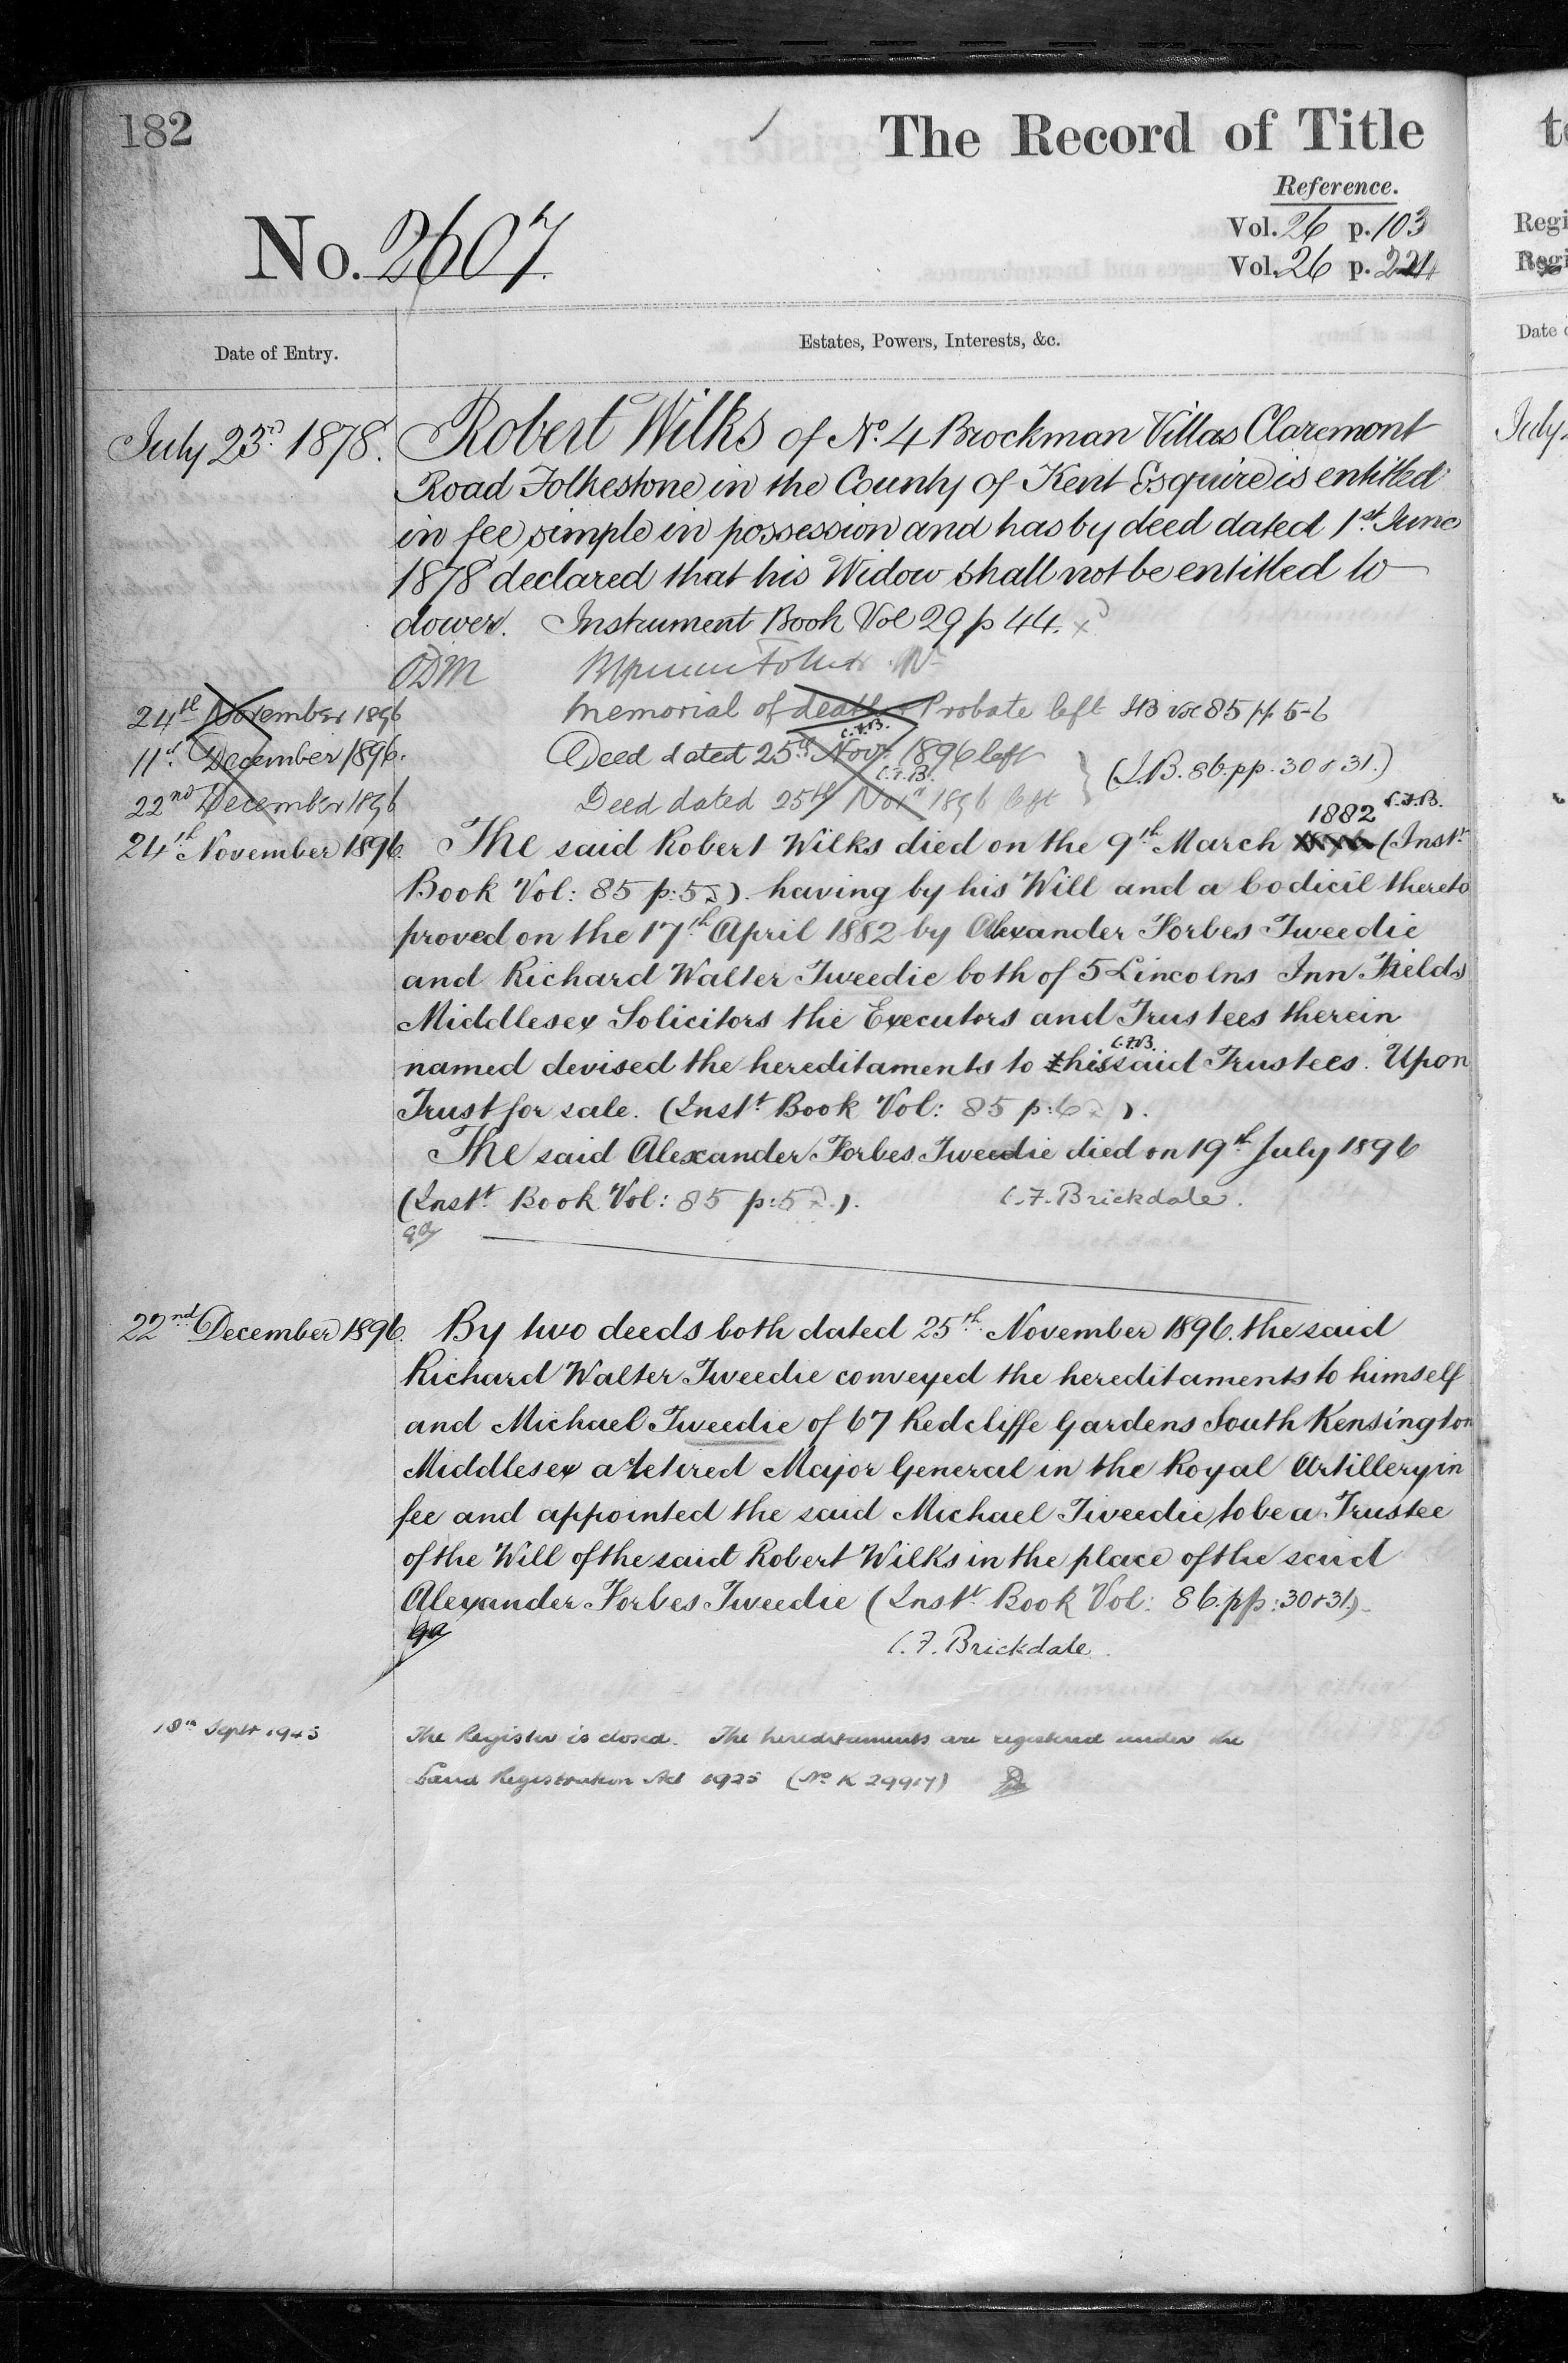 182
The Record of Title
Reference.
No. 2607.
Vol. 26 p. 103
Vol. 26 p. 224
Date of Entry.
Estates, Powers, Interests, &c.
July 23rd 1878. Robert Wilks of No. 4 Brockman Villas Claremont
Road Folkestone in the County of Kent Esquire is entitled
in fee simple in possession and has by deed dated 1st June
1878 declared that his Widow shall not be entitled to
dower. Instrument Book Vol 29 p 44.
24th November 1896 Memorial of death & Probate left vol 85 pp 5-6
11th December 1896. Deed dated 25th Novr. 1896 left
C.F.B.
(I.B. 86. pp. 30 & 31.)
22nd December 1896 Deed dated 25th Novr 1896 left
C.F.B.
1882 C.F.B.
24th November 1896. The said Robert Wilks died on the 9th March (Instt
Book Vol: 85 p: 5). having by his Will and a Codicil thereto
proved on the 17th April 1882 by Alexander Forbes Tweedie
and Richard Walter Tweedie both of 5 Lincolns Inn Fields
Middlesex Solicitors the Executors and Trustees therein
C.F.B.
named devised the hereditaments to his said Trustees. Upon
Trust for sale. (Instt Book Vol: 85 p: 6).
The said Alexander Forbes Tweedie died on 19th July 1896
(Instt Book Vol: 85 p: 5). C.F. Brickdale.
22nd December 1896. By two deeds both dated 25th November 1896. the said
Richard Walter Tweedie conveyed the hereditaments to himself
and Michael Tweedie of 67 Redcliffe Gardens South Kensington
Middlesex a retired Major General in the Royal Artillery in
fee and appointed the said Michael Tweedie to be a Trustee
of the Will of the said Robert Wilks in the place of the said
Alexander Forbes Tweedie (Instt Book Vol: 86. pp: 30 & 31.)
C.F. Brickdale.
18th Sept 1945 The Register is closed. The hereditaments are registered under the
Land Registration Act 1925 (No K 29917)
to
Regi
Regi
Date
July